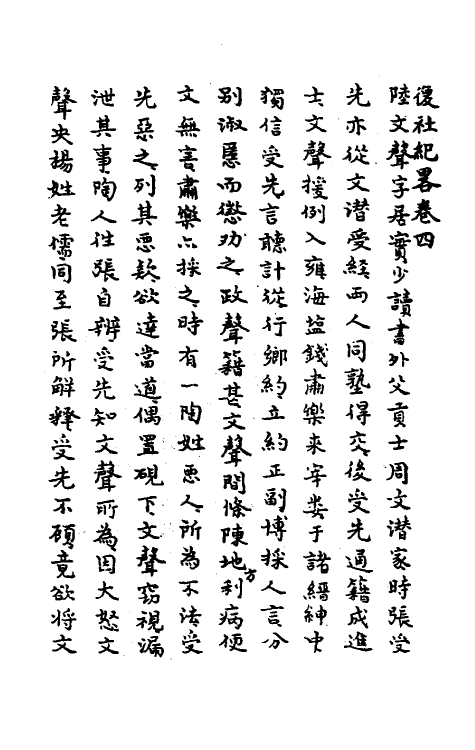 復社紀畧卷四
陸文聲字居實少讀書外父貢士周文濳家時張受
先亦從文濳受經兩人同塾得交後受先通籍成進
士文聲援例入雍海塩錢肅樂來宰婁于諸縉紳中
獨信受先言聽計從行鄉約立約正副博採人言分
別淑慝而懲勸之政聲籍甚文聲間條陳地方利病便
文無害肅樂亦採之時有一陶姓惡人所為不法受
先惡之列其惡欵欲達當道偶置硯下文聲竊視漏
泄其事陶人往張自辨受先知文聲所為因大怒文
聲央楊姓老儒同至張所解釋受先不顧竟欲将文